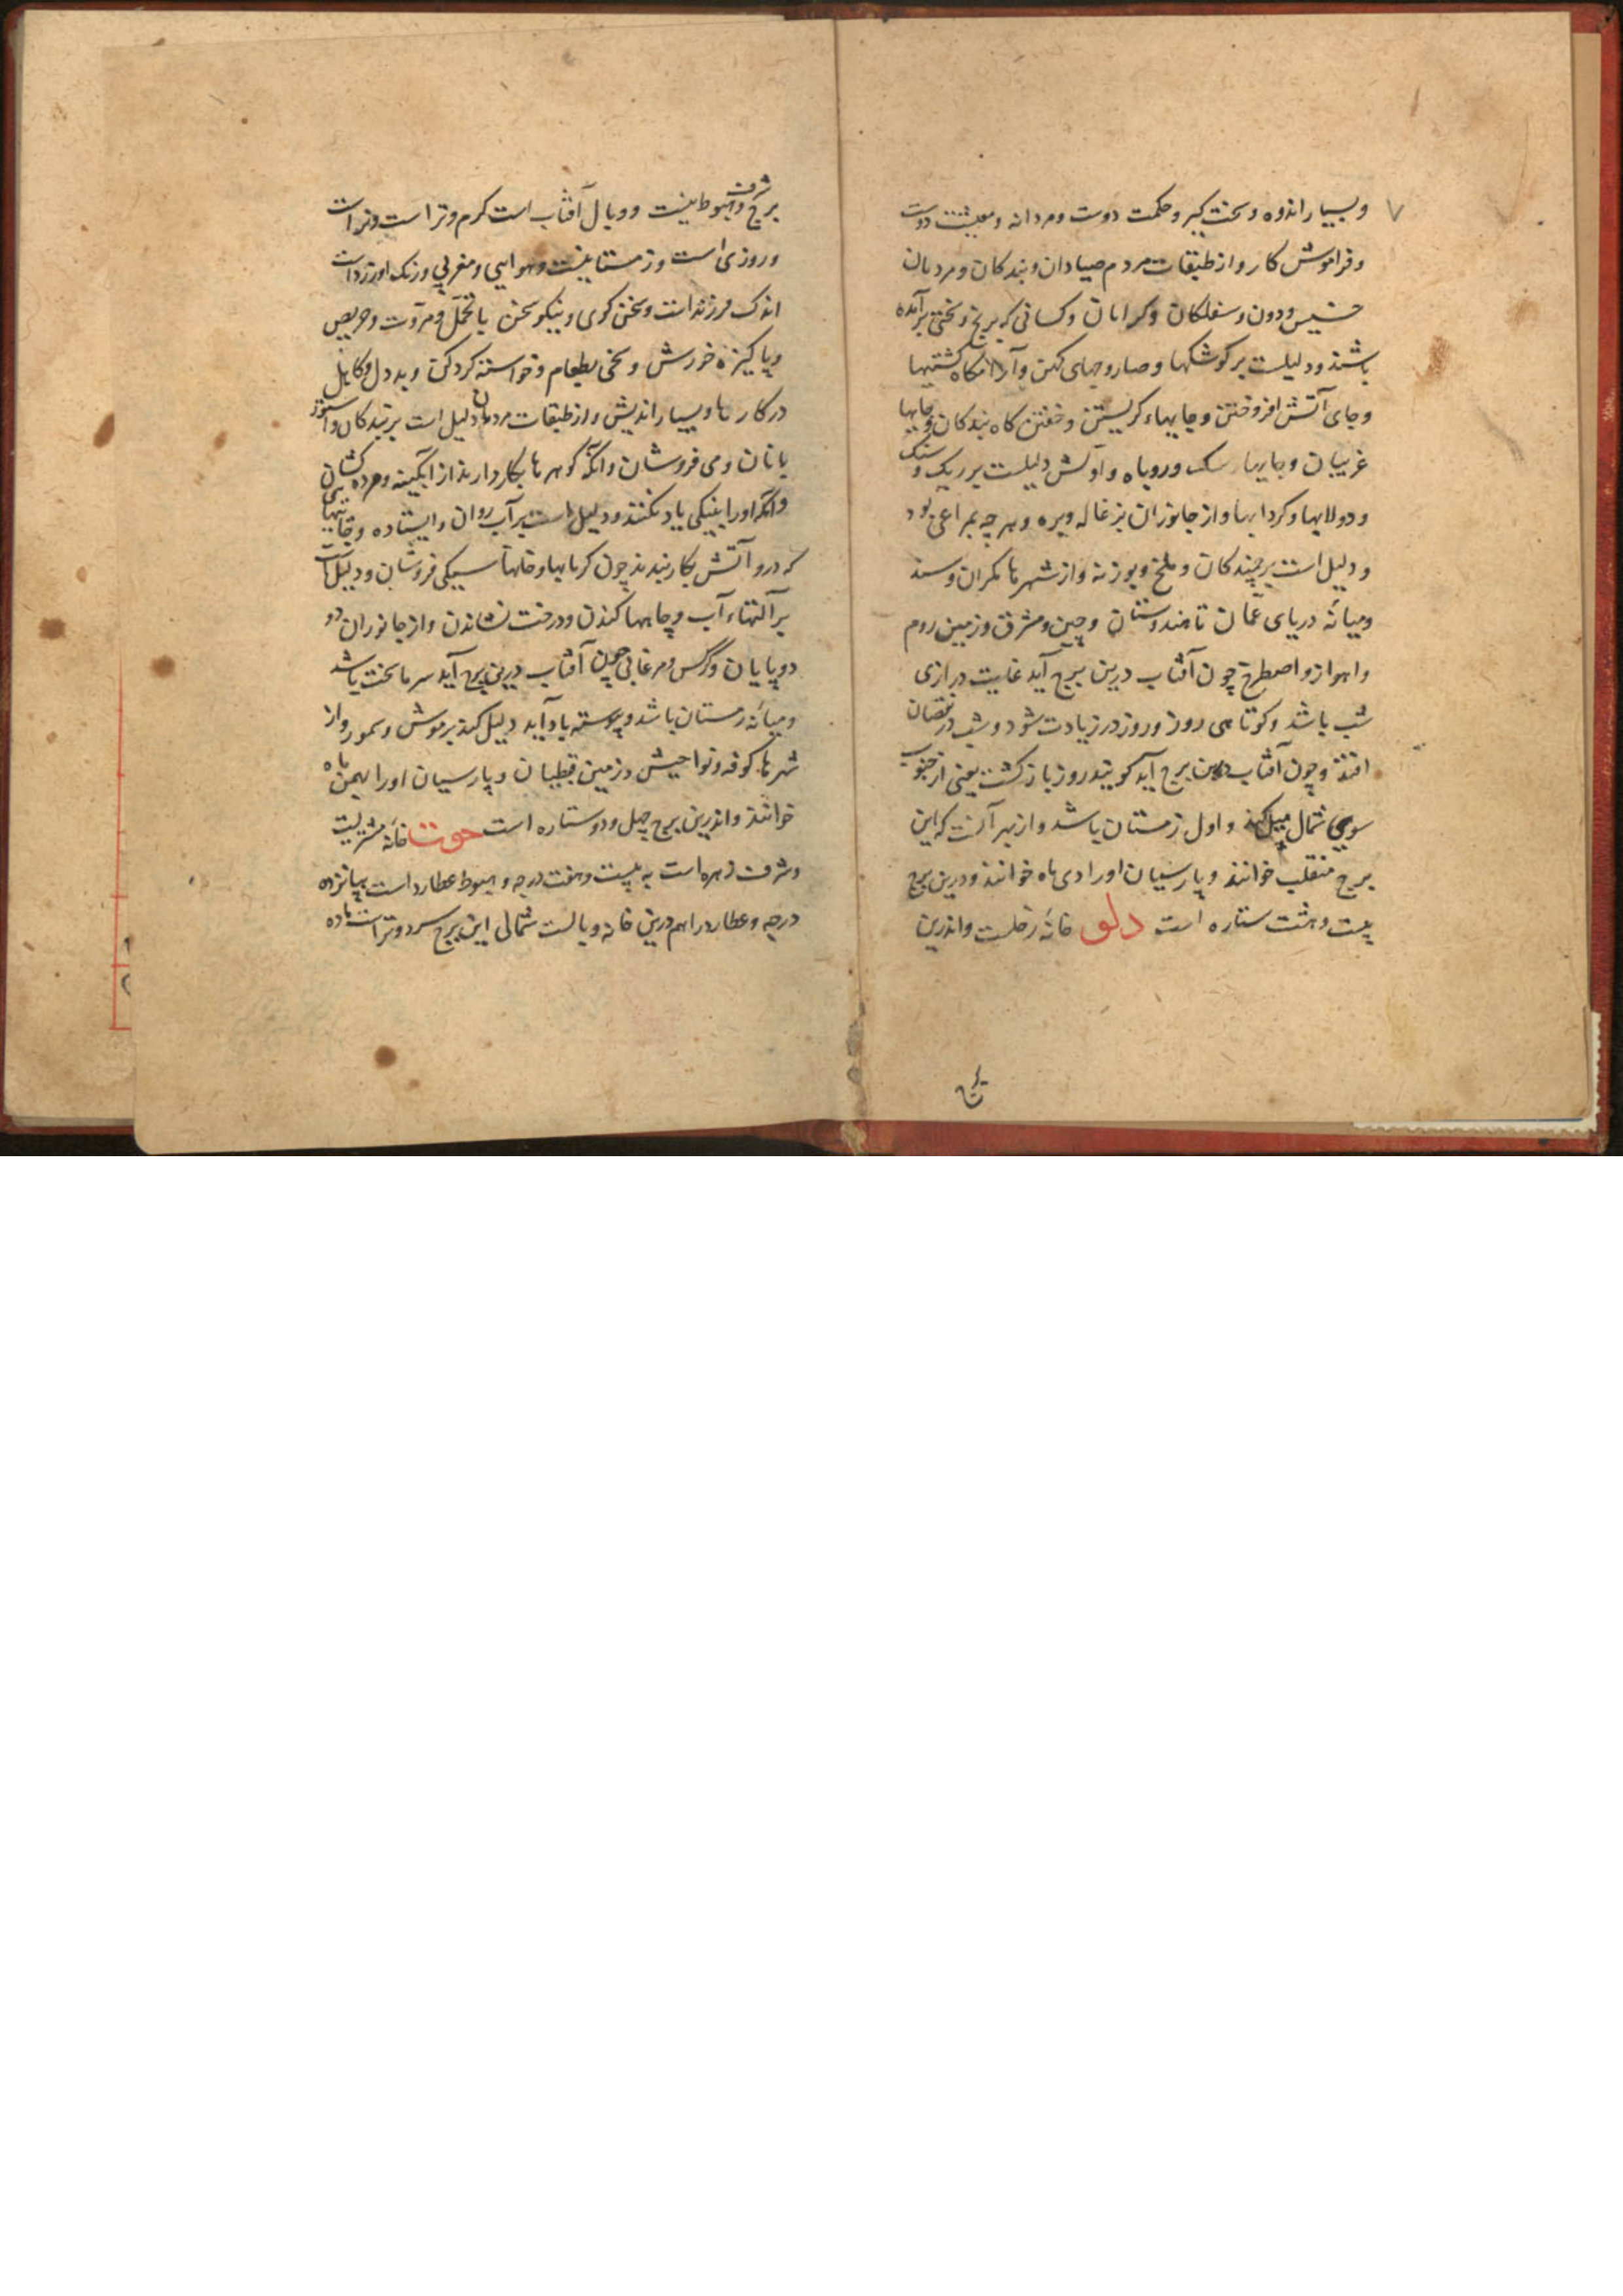 ۷
و بسیار اندوه و سخت کبر و حکمت دوست و مردانه و معیشت دوست
و فراموش کار و از طبقات مردم صیادان و بندکان و مردمان
خسیس و دون و سفلکان و کدایان و کسانی که برنج و سختی برآمده
باشند و دلیلست بر کوشکها و صاروجهای کهن و آرامکاه کشتیها
و جای آتش افروختن و جایهاء کریستن و خفتن کاه بندکان و جایها
غریبان و جایها سک و روباه و اولش دلیلست بر ریک و سنک
و دولابها و کردابها و از جانوران بزغاله و بره و هر چه بمراعی بود
و دلیل است بر خزندکان و ملخ و بوزنه و از شهرها مکران و سند
و میانهٔ دریای عمان تا هندوستان و چین و مشرق و زمین روم
و اهواز و اصطرخ چون آفتاب درین برج آید غایت درازی
شب باشد و کوتاهی روز و روز در زیادت شود و شب در نقصان
افتد و چون آفتاب درین برج آید کویند روز بازکشت یعنی از جنوب
سوی شمال میل کند و اول زمستان باشد و از بهر آنست که این
برج منقلب خوانند و پارسیان او را دی ماه خوانند و درین برج
بیست و هشت ستاره است دلو خانهٔ زحلست و اندرین
برج شرف و هبوط نیست و وبال آفتاب است کرم و تر است و نر است
و روزی است و زمستانیست و هوایی و مغربی و رنک او زرد است
اندک فرزند است و سخن کوی و نیکو سخن با تحمل و مروت و حریص
و پاکیزه خورش و سخی بطعام و خواسته کرد کن و بد دل و کاهل
در کارها و بسیار اندیش و از طبقات مردمان دلیل است بر بندکان و ستور
بانان و می فروشان و آنکه کوهرها بکار دارند از آبکینه و مرده کشان
و آنکه او را بنیکی یاد نکنند و دلیل است بر آب روان و ایستاده و جایهایی
که درو آتش بکار برند چون کرمابها و خانها سیکی فروشان و دلیل است
بر آلتهاء آب و چاهها کندن و درخت نشاندن و از جانوران دو
دو پایان و کرکس و مرغابی چون آفتاب درین برج آید سرما سخت باشد
و میانهٔ زمستان باشد و پیوسته باد آید دلیل کند بر موش و سمور و از
شهرها کوفه و نواحیش و زمین قبطیان و پارسیان او را بهمن ماه
خوانند و اندرین برج چهل و دو ستاره است حوت خانهٔ مشتریست
و شرف زهره است به بیست و هفت درجه و هبوط عطارد است بپانزده
درجه و عطارد را هم درین خانه وبالست شمالی این برج سرد و تر است ماده